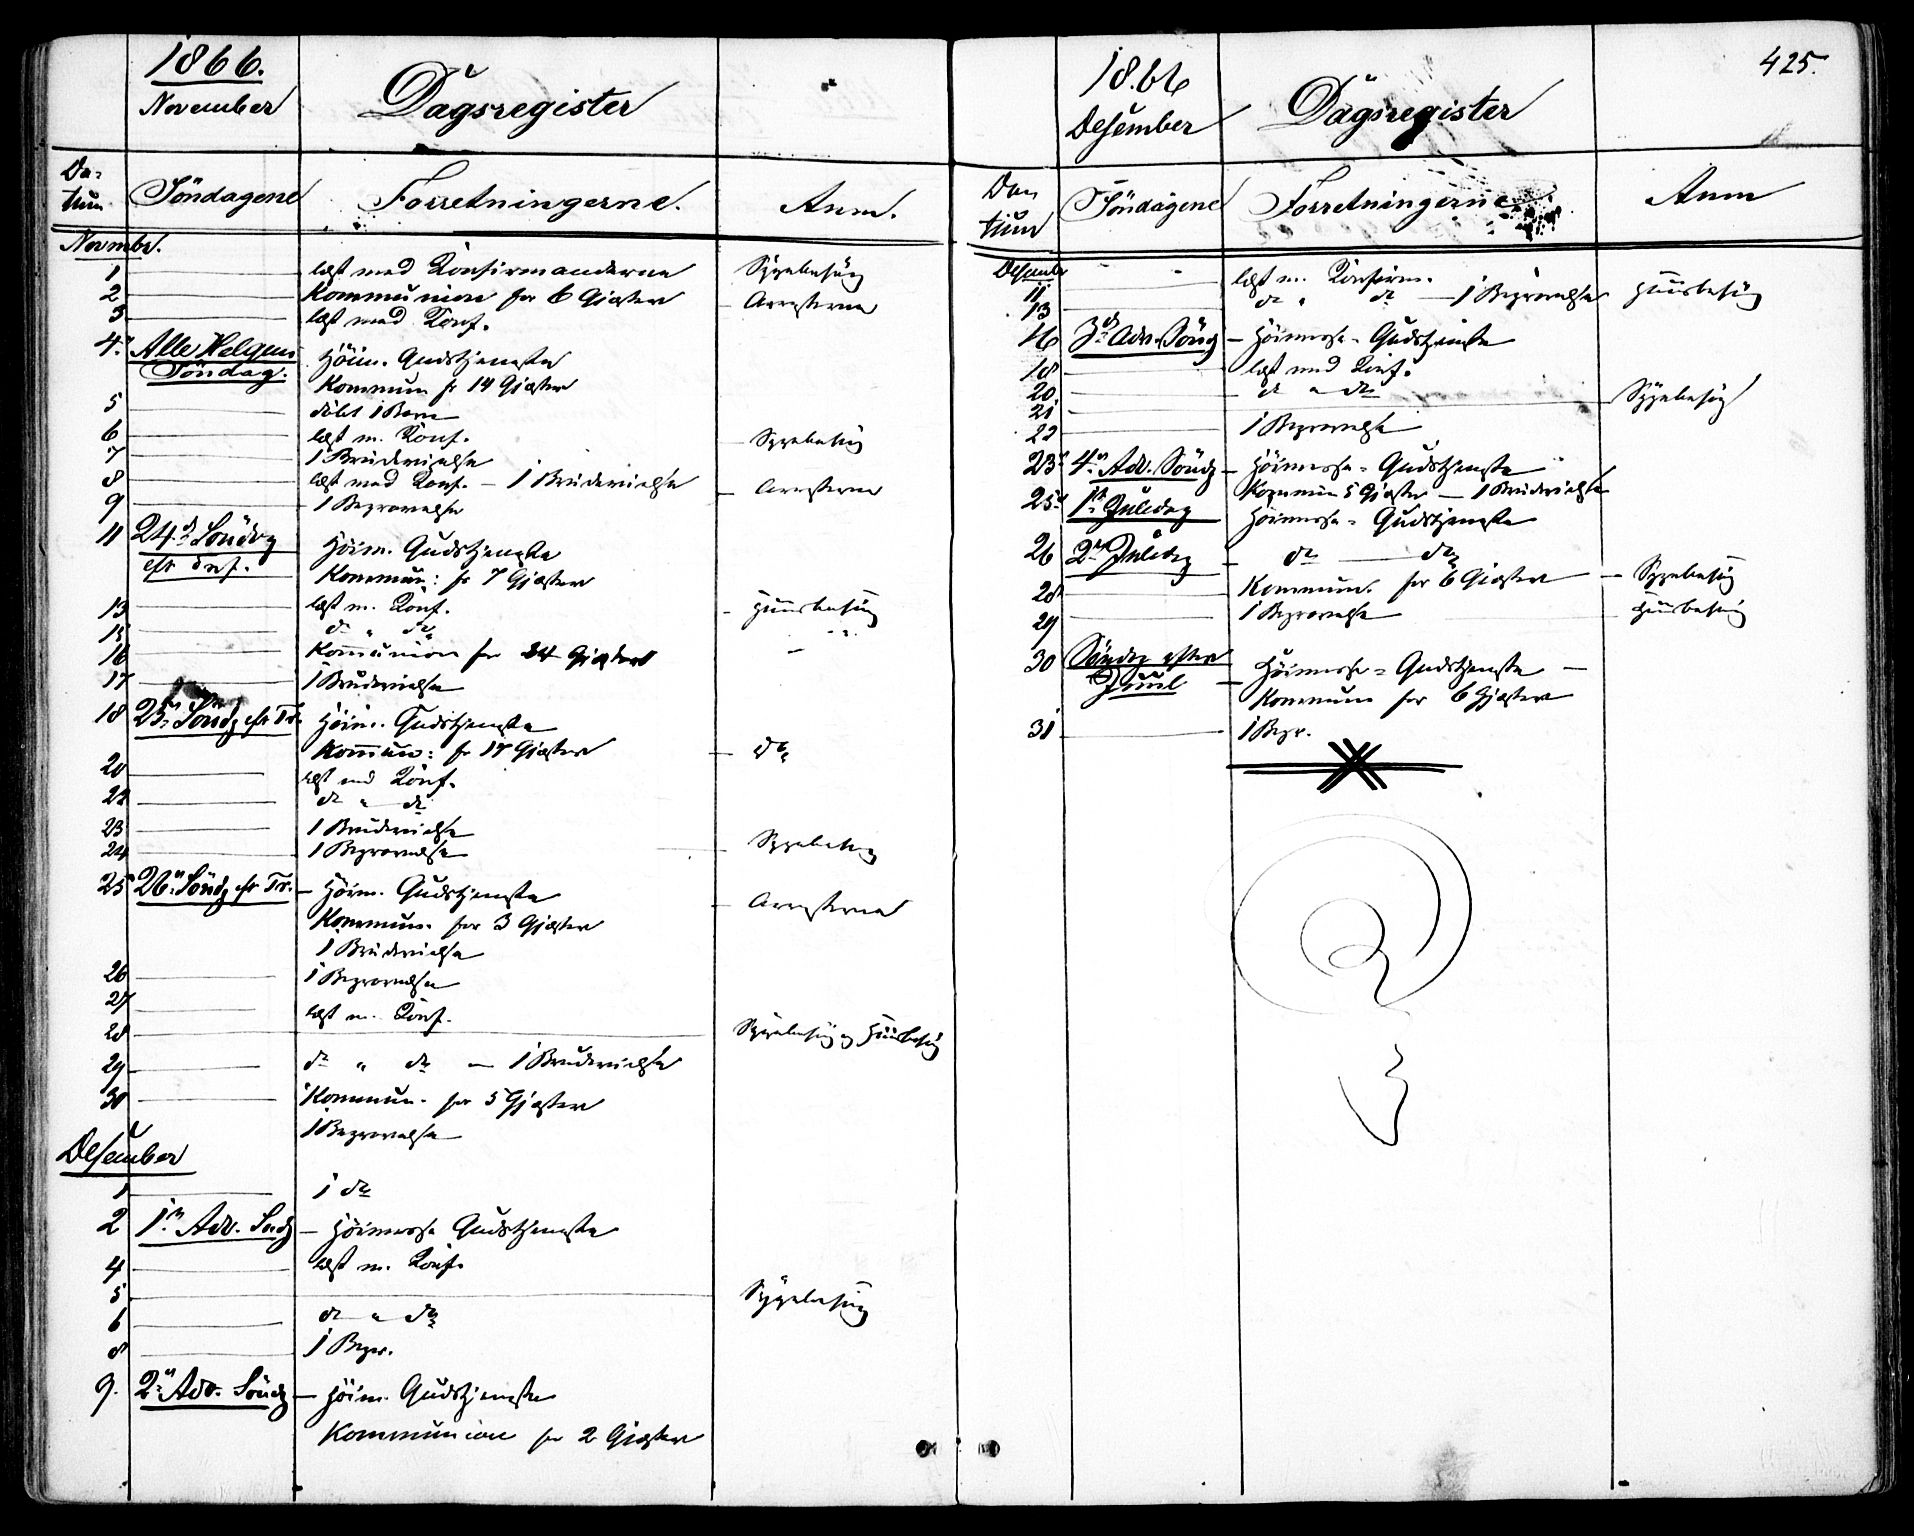 1866.
November
Dagsregister
Da-
tum
Söndagene
Forretningerne.
Anm.
Novembr.
1 læst med Konfirmanderne Sygebesög
2 Kommunion for 6 Gjæster Arresterne
3 læst med Konf.
4. Alle Helgens Höim. Gudstjeneste
Söndag. Kommun fr 14 Gjæster
5 döbt 1 Barn
6 læst m. Konf. Sygebesög
7 1 Brudevielse
8 læst med Konf. – 1 Brudevielse Arresterne
9 1 Begravelse
11 24d Söndag Höim. Gudstjeneste
efr Kommun: fr 7 Gjæster
13 læst m. Konf. Huusbesög
15 do " do
16 Kommunion for 24 Gjæster
17 1 Brudevielse
18 25 Söndg efr Tr. Höim. Gudstjeneste
Kommun: fr 17 Gjæster do
20 læst md Konf.
22 do " do
23 1 Brudevielse
24 1 Begravelse Sygebesög
25 26. Söndg efr Tr. – Höim. Gudstjeneste
Kommun. for 3 Gjæster Arresterne
1 Brudevielse
26 1 Begravelse
27 læst m. Konf.
28 Sygebesög og Huusbesög
29 do " do – 1 Brudevielse
30 Kommun. for 5 Gjæster
1 Begravelse
Desember
1 1 do
2 1. Adv. Sndg – Höimesse Gudstjeneste
4 læst m. Konf.
5 Sygebesög
6 do " do
8 1 Begr.
9. 2n Adv. Söndg – Höim. Gudstjeneste
Kommunion for 2 Gjæster
1866
Desember
Dagsregister
425.
Da
tum
Söndagene
Forretningerne
Anm
Desember
11 læst m. Konfirm.
13 do " do – 1 Begravelse Huusbesög
16 3d Adv. Söng – Höimesse-Gudstjeneste
18 læst med Konf.
20 do " do
21 Sygebesög
22 1 Begravelse
23 4n Adv. Söndg – Höimesse-Gudstjeneste
Kommun 5 Gjæster – 1 Brudevielse
25 1ste Juledag Höimesse-Gudstjeneste
26 2den Juledag – do – do
Kommun. for 6 Gjæster – Sygebesög
28 1 Begravelse Huusbesög
29
30 Söndg efter Höimesse-Gudstjeneste –
Juul – Kommun for 6 Gjæster
31 1 Begr.